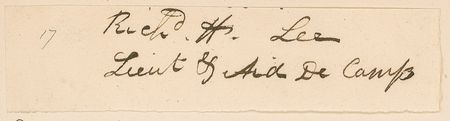 17 Richd. H. Lee
Lieut & Aid De Camp